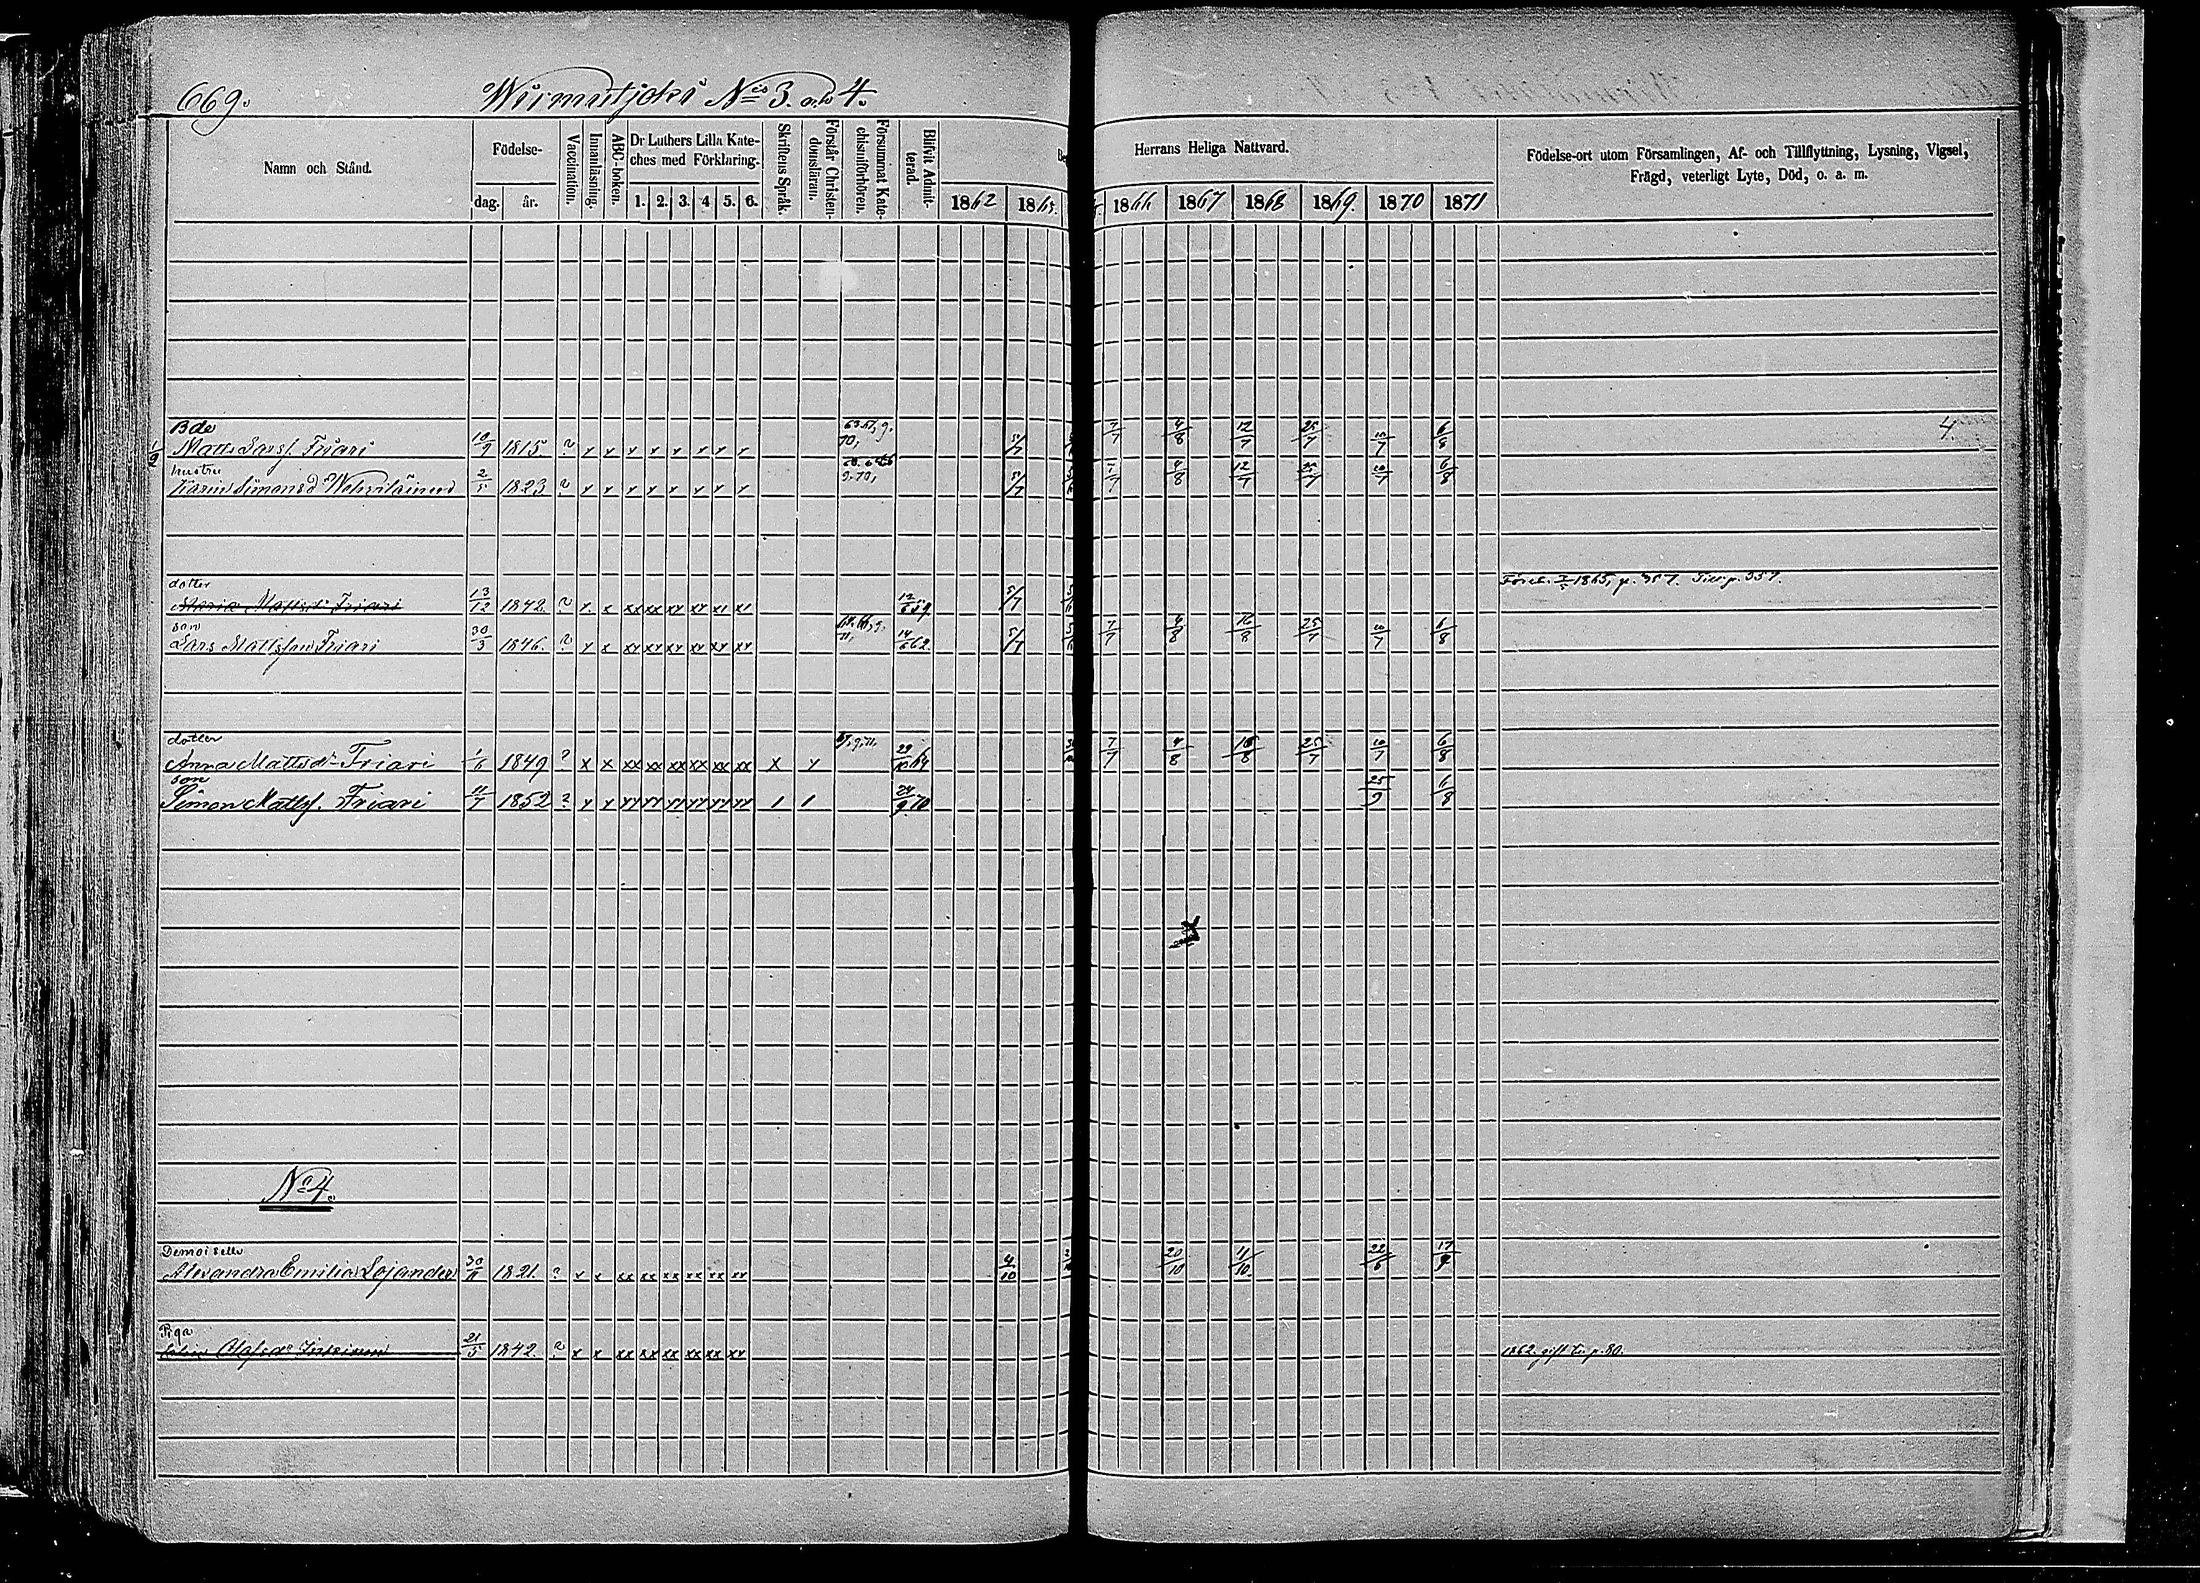 669. Wirmutjoki Nris 3. o. 4.
Namn och Stånd. Födelse- dag. år. Vaccination. Innanläsning. ABC-boken. Dr Luthers Lilla Kateches med Förklaring. 1. 2. 3. 4 5. 6. Skriftens Språk. Förstår Christendomsläran. Försummat Katechismiförhören. Blifvit Admitterad. 1862 1865. Herrans Heliga Nattvard. 1866 1867 1868 1869. 1870 1871 Födelse-ort utom Församlingen, Af- och Tillflyttning, Lysning, Vigsel, Frägd, veterligt Lyte, Död, o. a. m.
Bde 4.
1/2 Matts Larss. Friari 10/9 1815 ? x x x x x x x x 5/7 7/7 4/8 12/7 25/7 10/7 6/8
hustru
Karin Simonsd 2/5 1823 ? x x x x x x x x 5/7 7/7 4/8 12/7 25/7 10/7 6/8
dotter
Maria Mattsdr Friari 13/12 1842 ? x x xx xx xx xx xx xx 12/6 59 5/7 1865, p. 357. Till p. 357.
son
Lars Mattsson Friari 30/3 1846. ? x x xx xx xx xx xx xx 14/6 62 5/7 7/7 4/8 16/8 25/7 10/7 6/8
dotter
Anna Mattsdr Friari 1/6 1849 ? x x xx xx xx xx xx xx x x 29/10 64 7/7 4/8 16/8 25/7 10/7 6/8
son
Simon Matts. Friari 11/7 1852 ? x x xx xx xx xx xx xx 1 1 24/9 70 25/9 6/8
No 4.
Demoiselle
Alexandra Emilia Lojander 30/11 1821. ? x x xx xx xx xx xx xx 4/10 20/10 11/10 22/6 17/9
Piga
Olofsdr 21/5 1842. ? x x xx xx xx xx xx xx 1862. gift till p. 80.